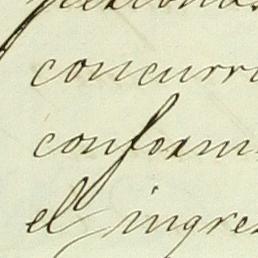 concurri
conform
el ingres